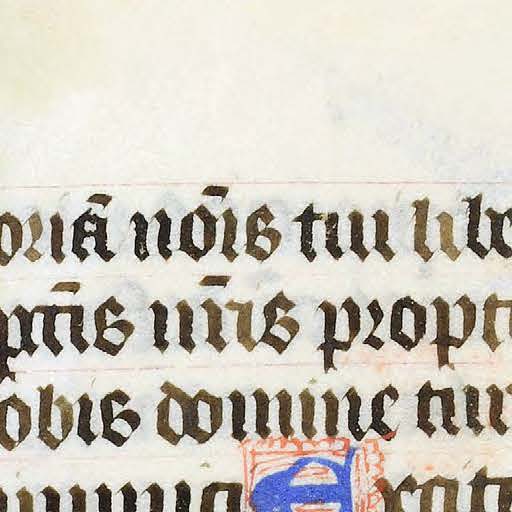 oriā nōis tui libe
pctīs nr̄is propt
obis domine tuu
Exau